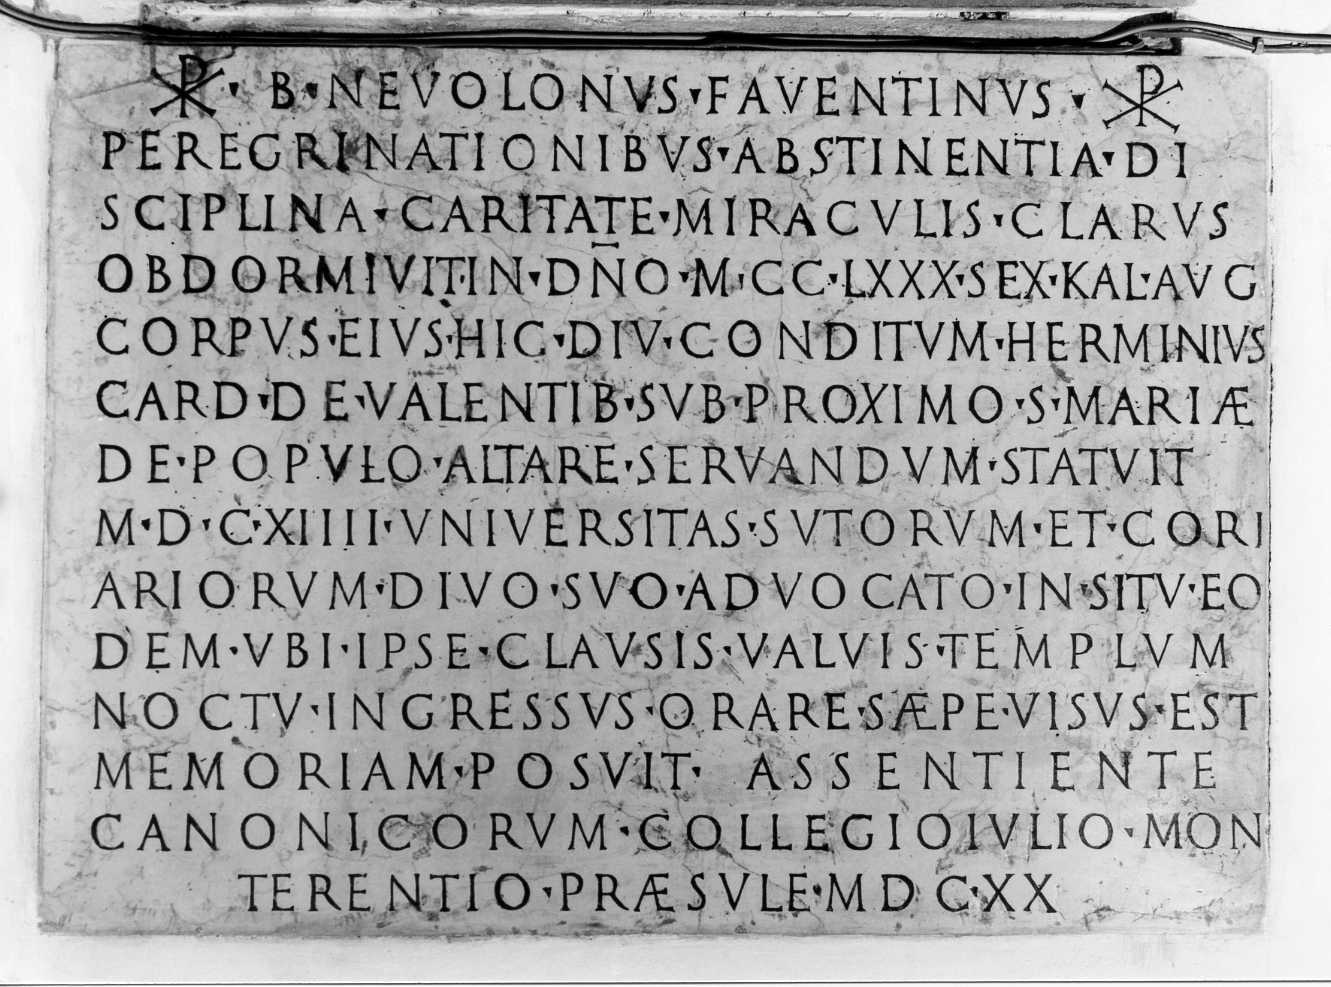 ☧ · B · NEVOLONVS · FAVENTINVS · ☧
PEREGRINATIONIBVS · ABSTINENTIA · DI
SCIPLINA · CARITATE · MIRACVLIS · CLARVS
OBDORMIVIT · IN · DN̄O · M · CC · LXXX · SEX · KAL · AVG
CORPVS · EIVS · HIC · DIV · CONDITVM · HERMINIVS
CARD · DE · VALENTIB · SVB · PROXIMO · S · MARIÆ
DE · POPVLO · ALTARE · SERVANDVM · STATVIT
M · D · C · XIIII · VNIVERSITAS · SVTORVM · ET · CORI
ARIORVM · DIVO · SVO · ADVOCATO · IN · SITV · EO
DEM · VBI · IPSE · CLAVSIS · VALVIS · TEMPLVM
NOCTV · INGRESSVS · ORARE · SÆPE · VISVS · EST
MEMORIAM · POSVIT · ASSENTIENTE
CANONICORVM · COLLEGIO IVLIO · MON
TERENTIO · PRÆSVLE · MD C · XX